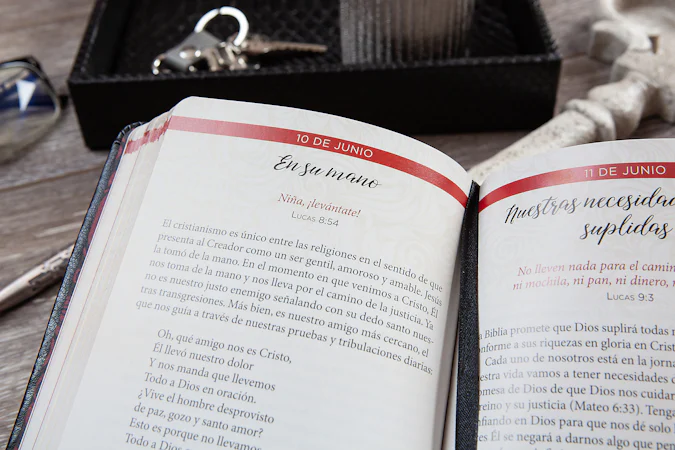 10 DE JUNIO
En su mano
Niña, ¡levántate!
LUCAS 8:54
El cristianismo es único entre las religiones en el sentido de que
presenta al Creador como un ser gentil, amoroso y amable. Jesús
la tomó de la mano. En el momento en que venimos a Cristo, Él
nos toma de la mano y nos lleva por el camino de la justicia. Ya
no es nuestro justo enemigo señalando con su dedo santo nues-
tras transgresiones. Más bien, es nuestro amigo más cercano, el
que nos guía a través de nuestras pruebas y tribulaciones diarias:
Oh, qué amigo nos es Cristo,
Él llevó nuestro dolor
Y nos manda que llevemos
Todo a Dios en oración.
¿Vive el hombre desprovisto
de paz, gozo y santo amor?
Esto es porque no llevamos
Todo a Dios
11 DE JUNIO
Nuestras necesida
suplidas
No lleven nada para el camin
ni mochila, ni pan, ni dinero,
LUCAS 9:3
a Biblia promete que Dios suplirá todas
onforme a sus riquezas en gloria en Crist
Cada uno de nosotros está en la jorna
estra vida vamos a tener necesidades
omesa de Dios de que Dios nos cuidar
reino y su justicia (Mateo 6:33). Tenga
nfiando en Dios para que nos dé solo
ces Él se negará a darnos algo que pen